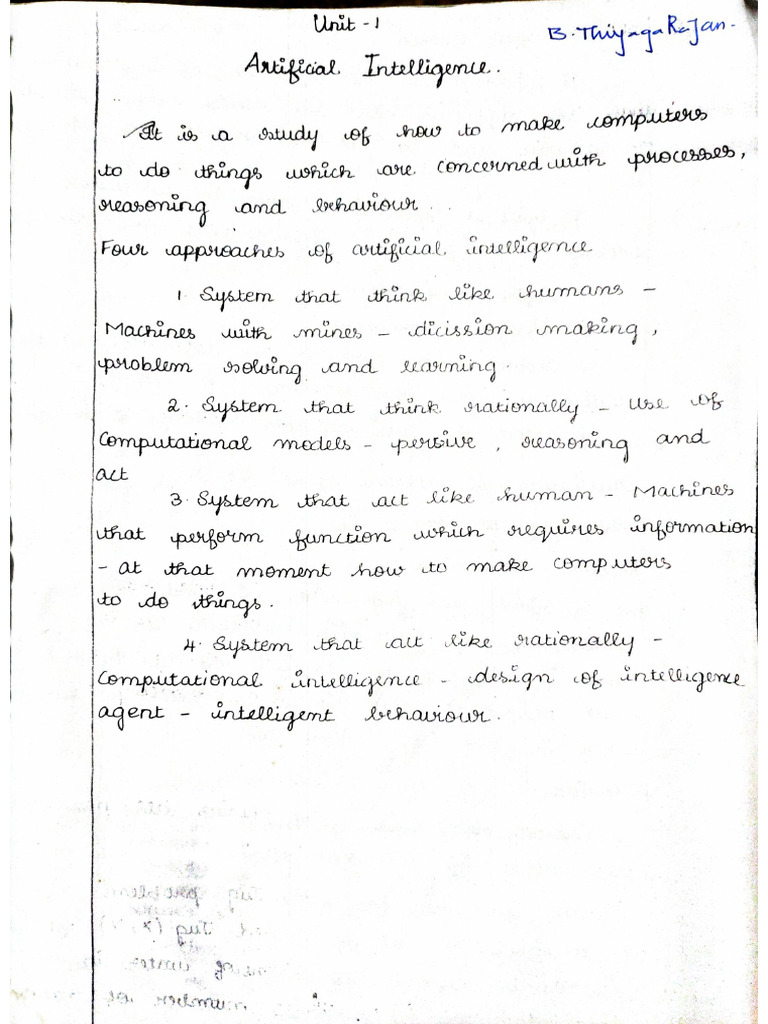 Unit - 1
B. ThiyagaRajan.
Artificial Intelligence.
It is a study of how to make computers
to do things which are concerned with processes,
reasoning and behaviour.
Four approaches of artificial intelligence
1. System that think like humans -
Machines with mines - dicission making,
problem solving and learning.
2. System that think rationally - use of
Computational models - pertive, reasoning and
act
3. System that act like human - Machines
that perform function which requires information
- at that moment how to make computers
to do things.
4. System that act like rationally -
Computational intelligence - design of intelligence
agent - intelligent behaviour.